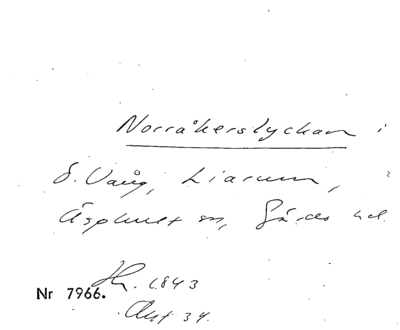 Norråkerslyckan i
Ö. Vång, Liarum,
Äsphult sn, Gärds hd.
Hr. 1843
Nr 7966.
Akt 34.